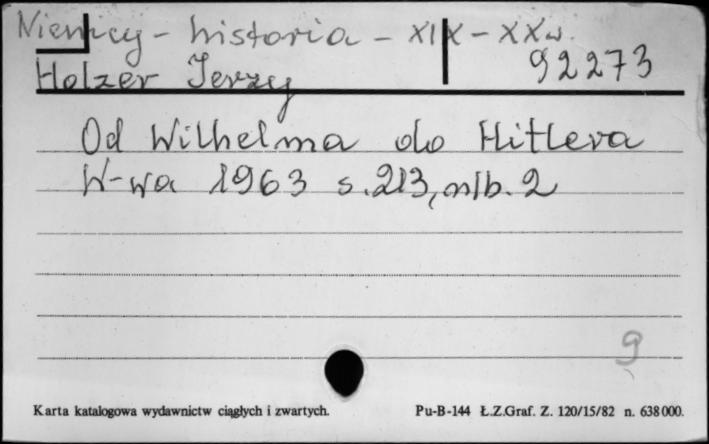 Niemcy - historia - XIX - XX w.
92273
Holzer Jerzy
Od Wilhelma do Hitlera
W-wa 1963 s. 213, nlb. 2
9
Karta katalogowa wydawnictw ciągłych i zwartych. Pu-B-144 Ł.Z.Graf. Z. 120/15/82 n. 638 000.